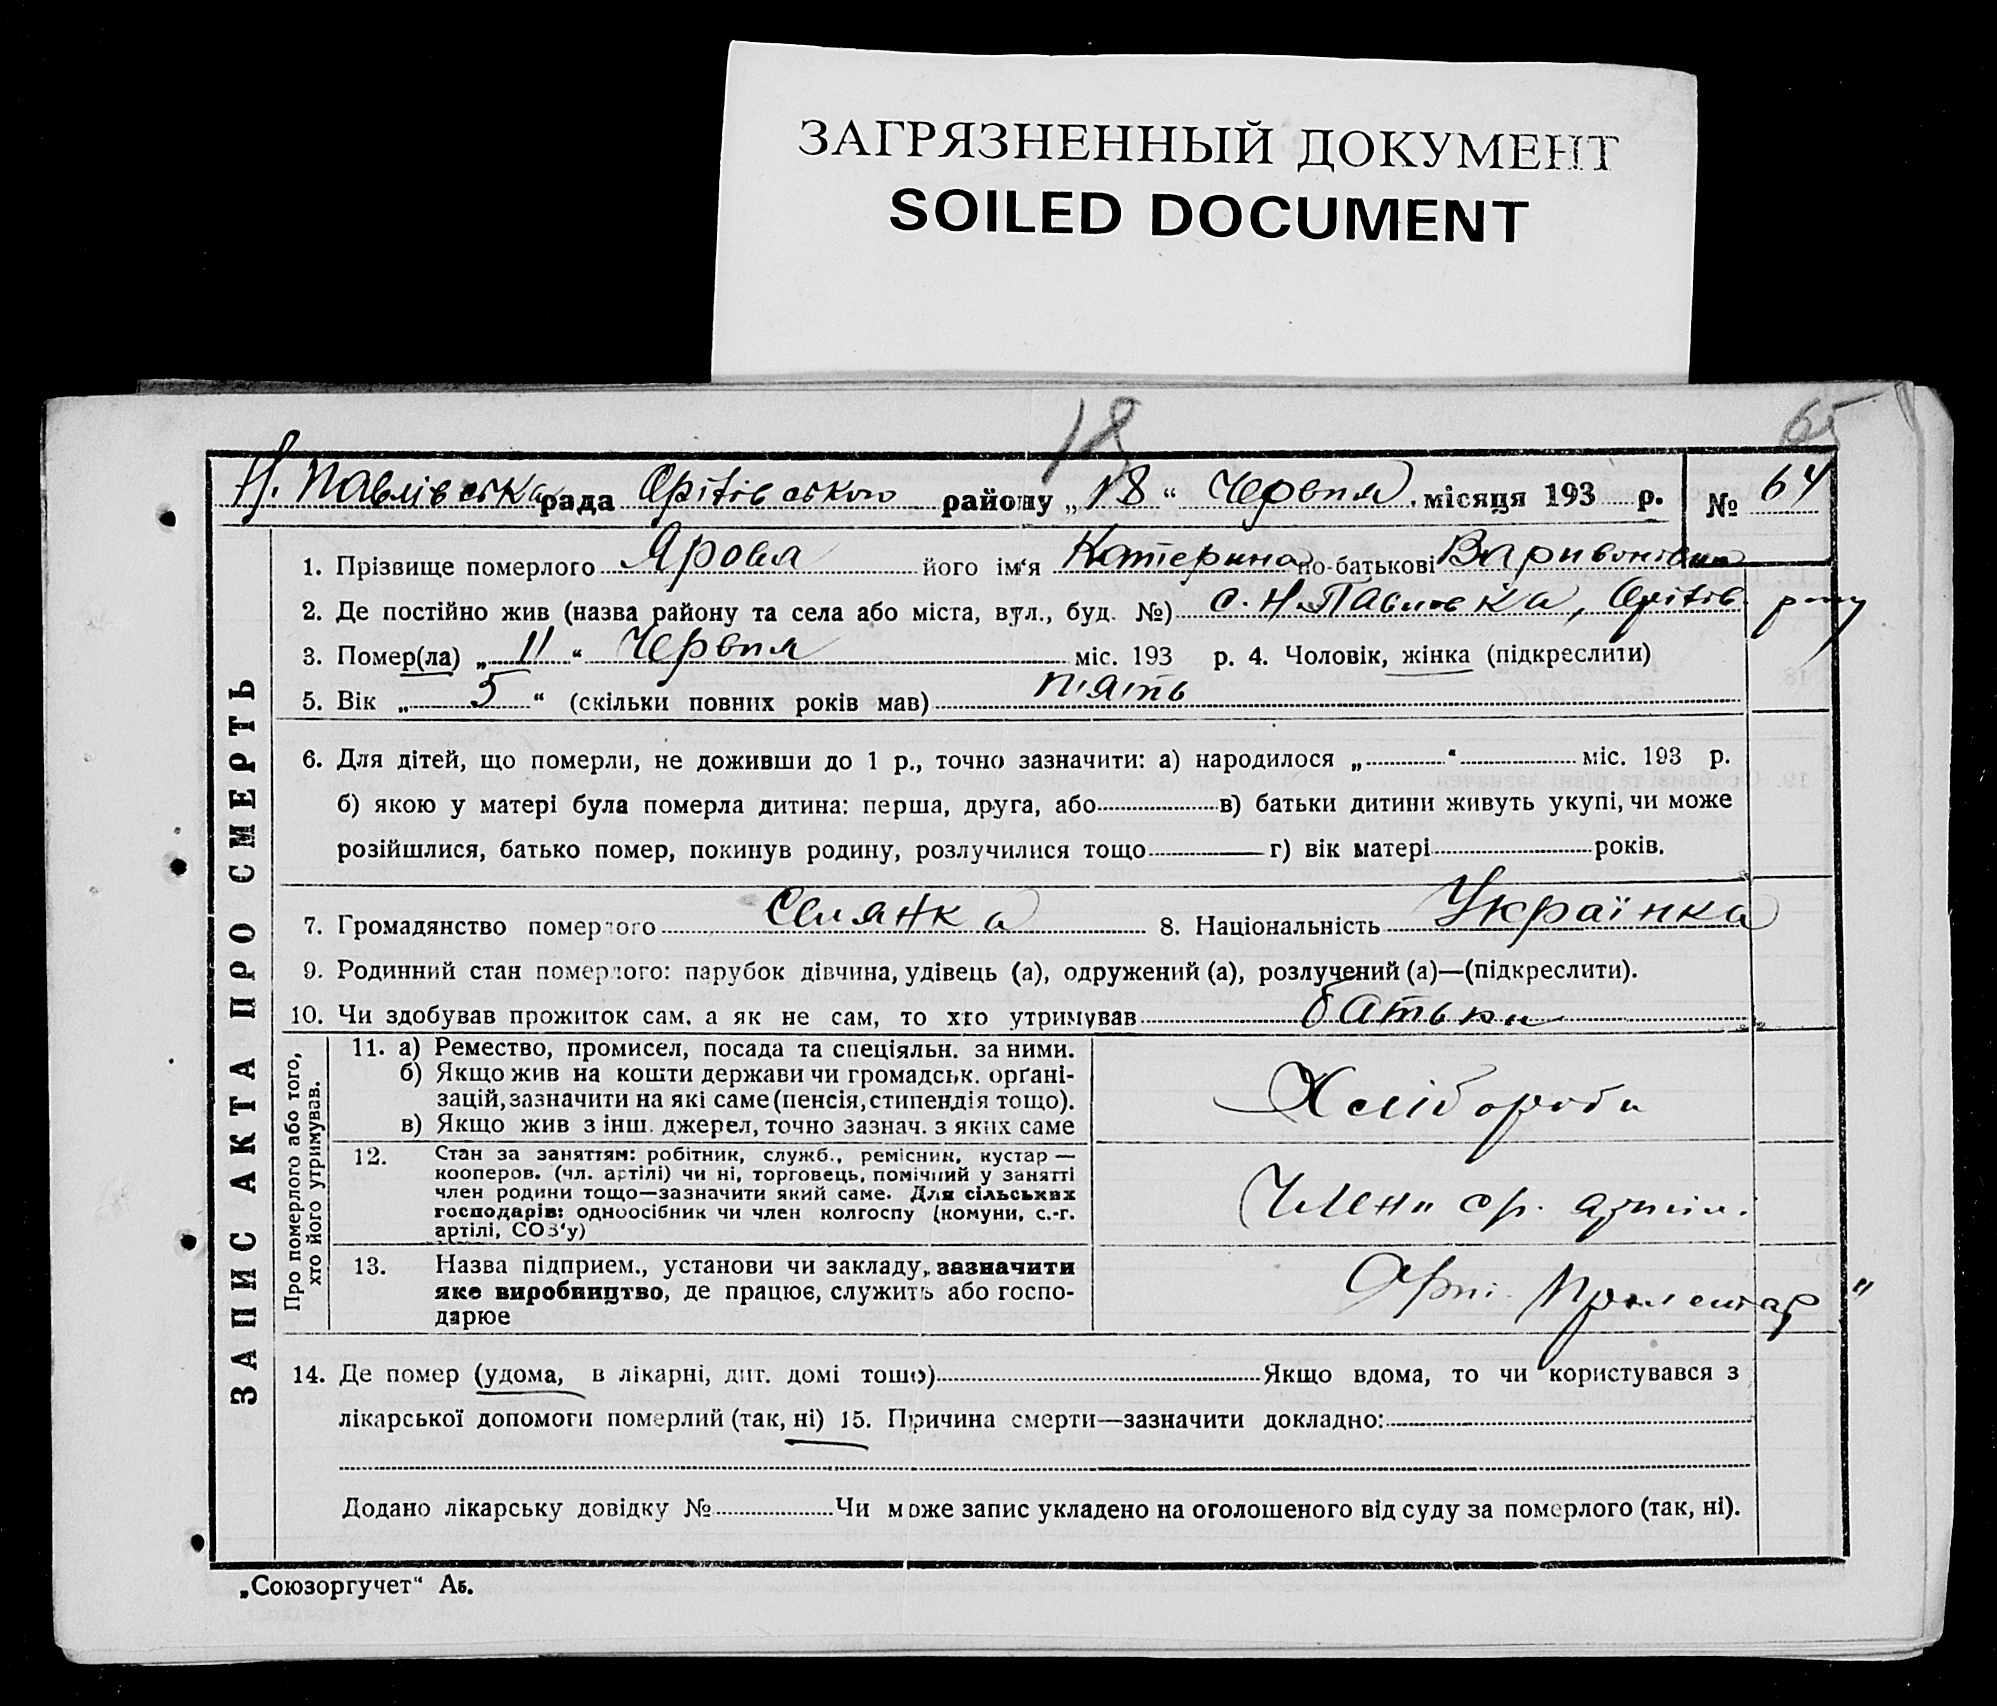 ЗАГРЯЗНЕННЫЙ ДОКУМЕНТ
SOILED DOCUMENT
18
65
Н. Павлівська рада Оріхівського району „18“ Червня місяця 193 р. № 64
ЗАПИС АКТА ПРО СМЕРТЬ
1. Прізвище померлого Ярова його ім'я Катерина по-батькові
2. Де постійно жив (назва району та села або міста, вул., буд. №) с. Н. Павлівка, Оріхів. р-ну
3. Помер(ла) „11“ Червня міс. 193 р. 4. Чоловік, жінка (підкреслити)
5. Вік „5“ (скільки повних років мав) п'ять
6. Для дітей, що померли, не доживши до 1 р., точно зазначити: а) народилося „ “ міс. 193 р.
б) якою у матері була померла дитина: перша, друга, або в) батьки дитини живуть укупі, чи може
розійшлися, батько помер, покинув родину, розлучилися тощо г) вік матері років.
7. Громадянство померлого Селянка 8. Національність Українка
9. Родинний стан померлого: парубок дівчина, удівець (а), одружений (а), розлучений (а)—(підкреслити).
10. Чи здобував прожиток сам, а як не сам, то хто утримував батьки
Про померлого або того,
хто його утримував.
11. а) Ремество, промисел, посада та спеціяльн. за ними.
б) Якщо жив на кошти держави чи громадськ. орґані-
зацій, зазначити на які саме (пенсія, стипендія тощо).
в) Якщо жив з інш. джерел, точно зазнач. з яких саме
Хлібороби
12. Стан за заняттям: робітник, служб., ремісник, кустар —
кооперов. (чл. артілі) чи ні, торговець, помічний у занятті
член родини тощо—зазначити який саме. Для сільських
господарів: одноосібник чи член колгоспу (комуни, с.-г.
артілі, СОЗ'у)
Члени ср. артіл.
13. Назва підприєм., установи чи закладу, зазначити
яке виробництво, де працює, служить або госпо-
дарює
Арт. Пролетар"
14. Де помер (удома, в лікарні, дит. домі тощо) Якщо вдома, то чи користувався з
лікарської допомоги померлий (так, ні) 15. Причина смерти—зазначити докладно:
Додано лікарську довідку № Чи може запис укладено на оголошеного від суду за померлого (так, ні).
„Союзоргучет“ Аб.